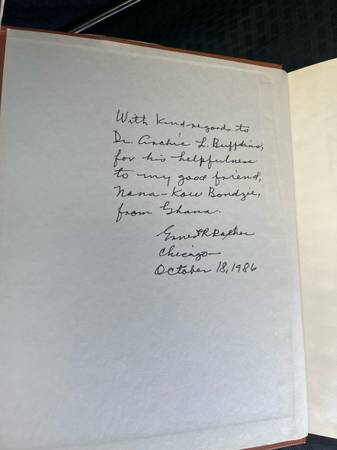 With kind regards to
Dr. Archie L. Buffkins,
for his helpfulness
to my good friend,
Nana-Kow Bondzie,
from Ghana.
Ernest R Rather
Chicago
October 18, 1986